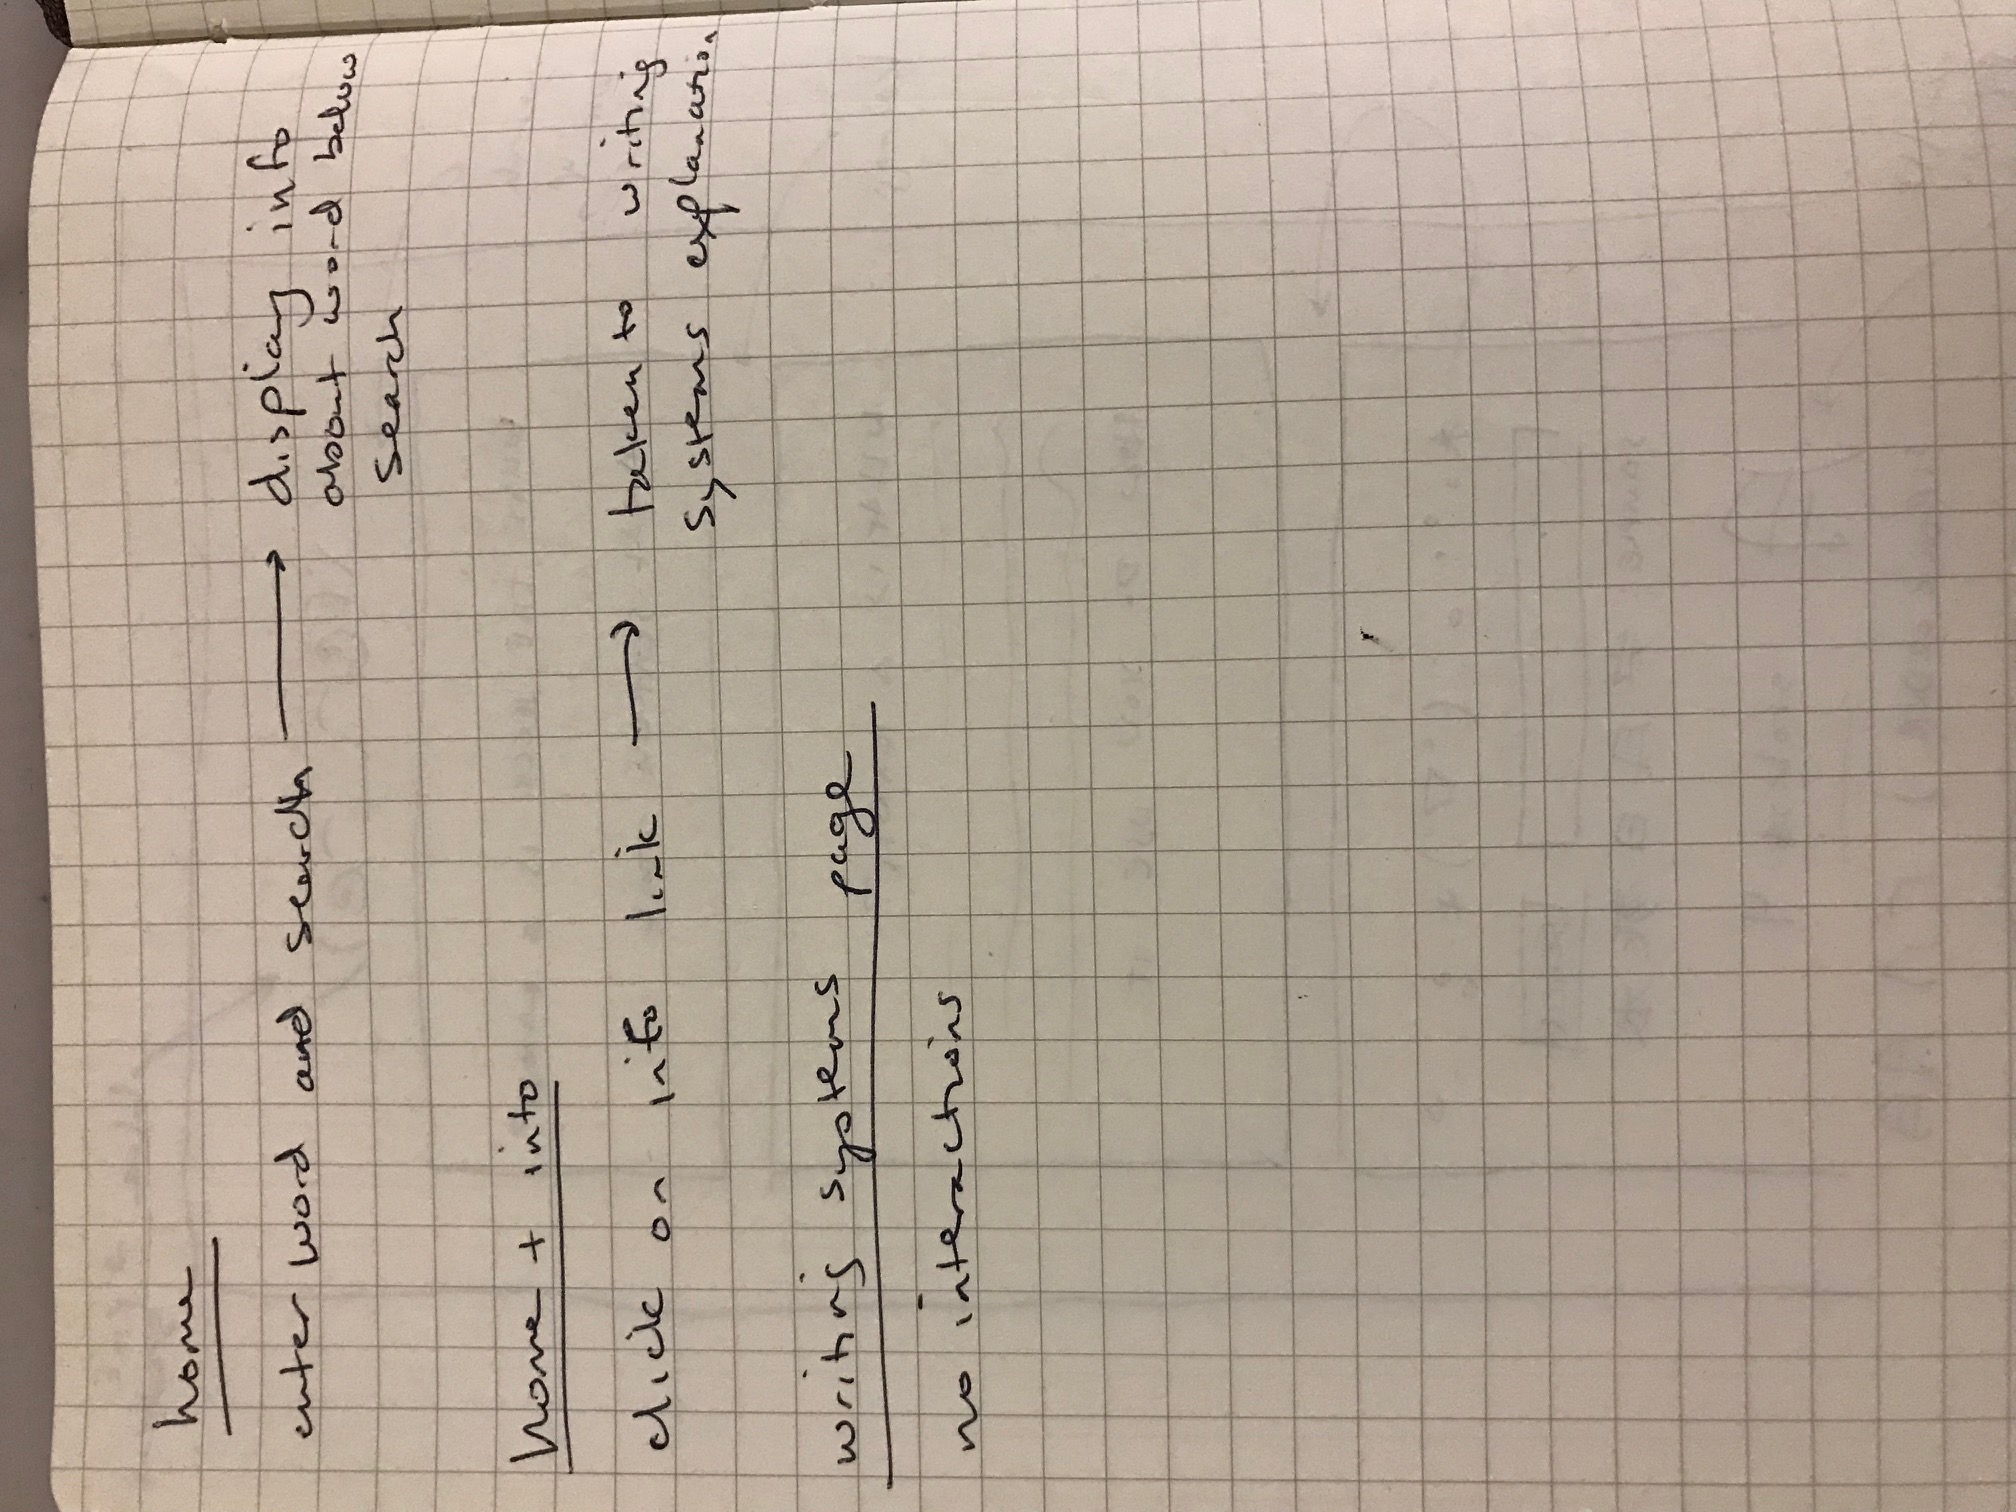 home
enter word and search → display info
about word below
search
home + info
click on info link → taken to writing
systems explanation
writing systems page
no interactions